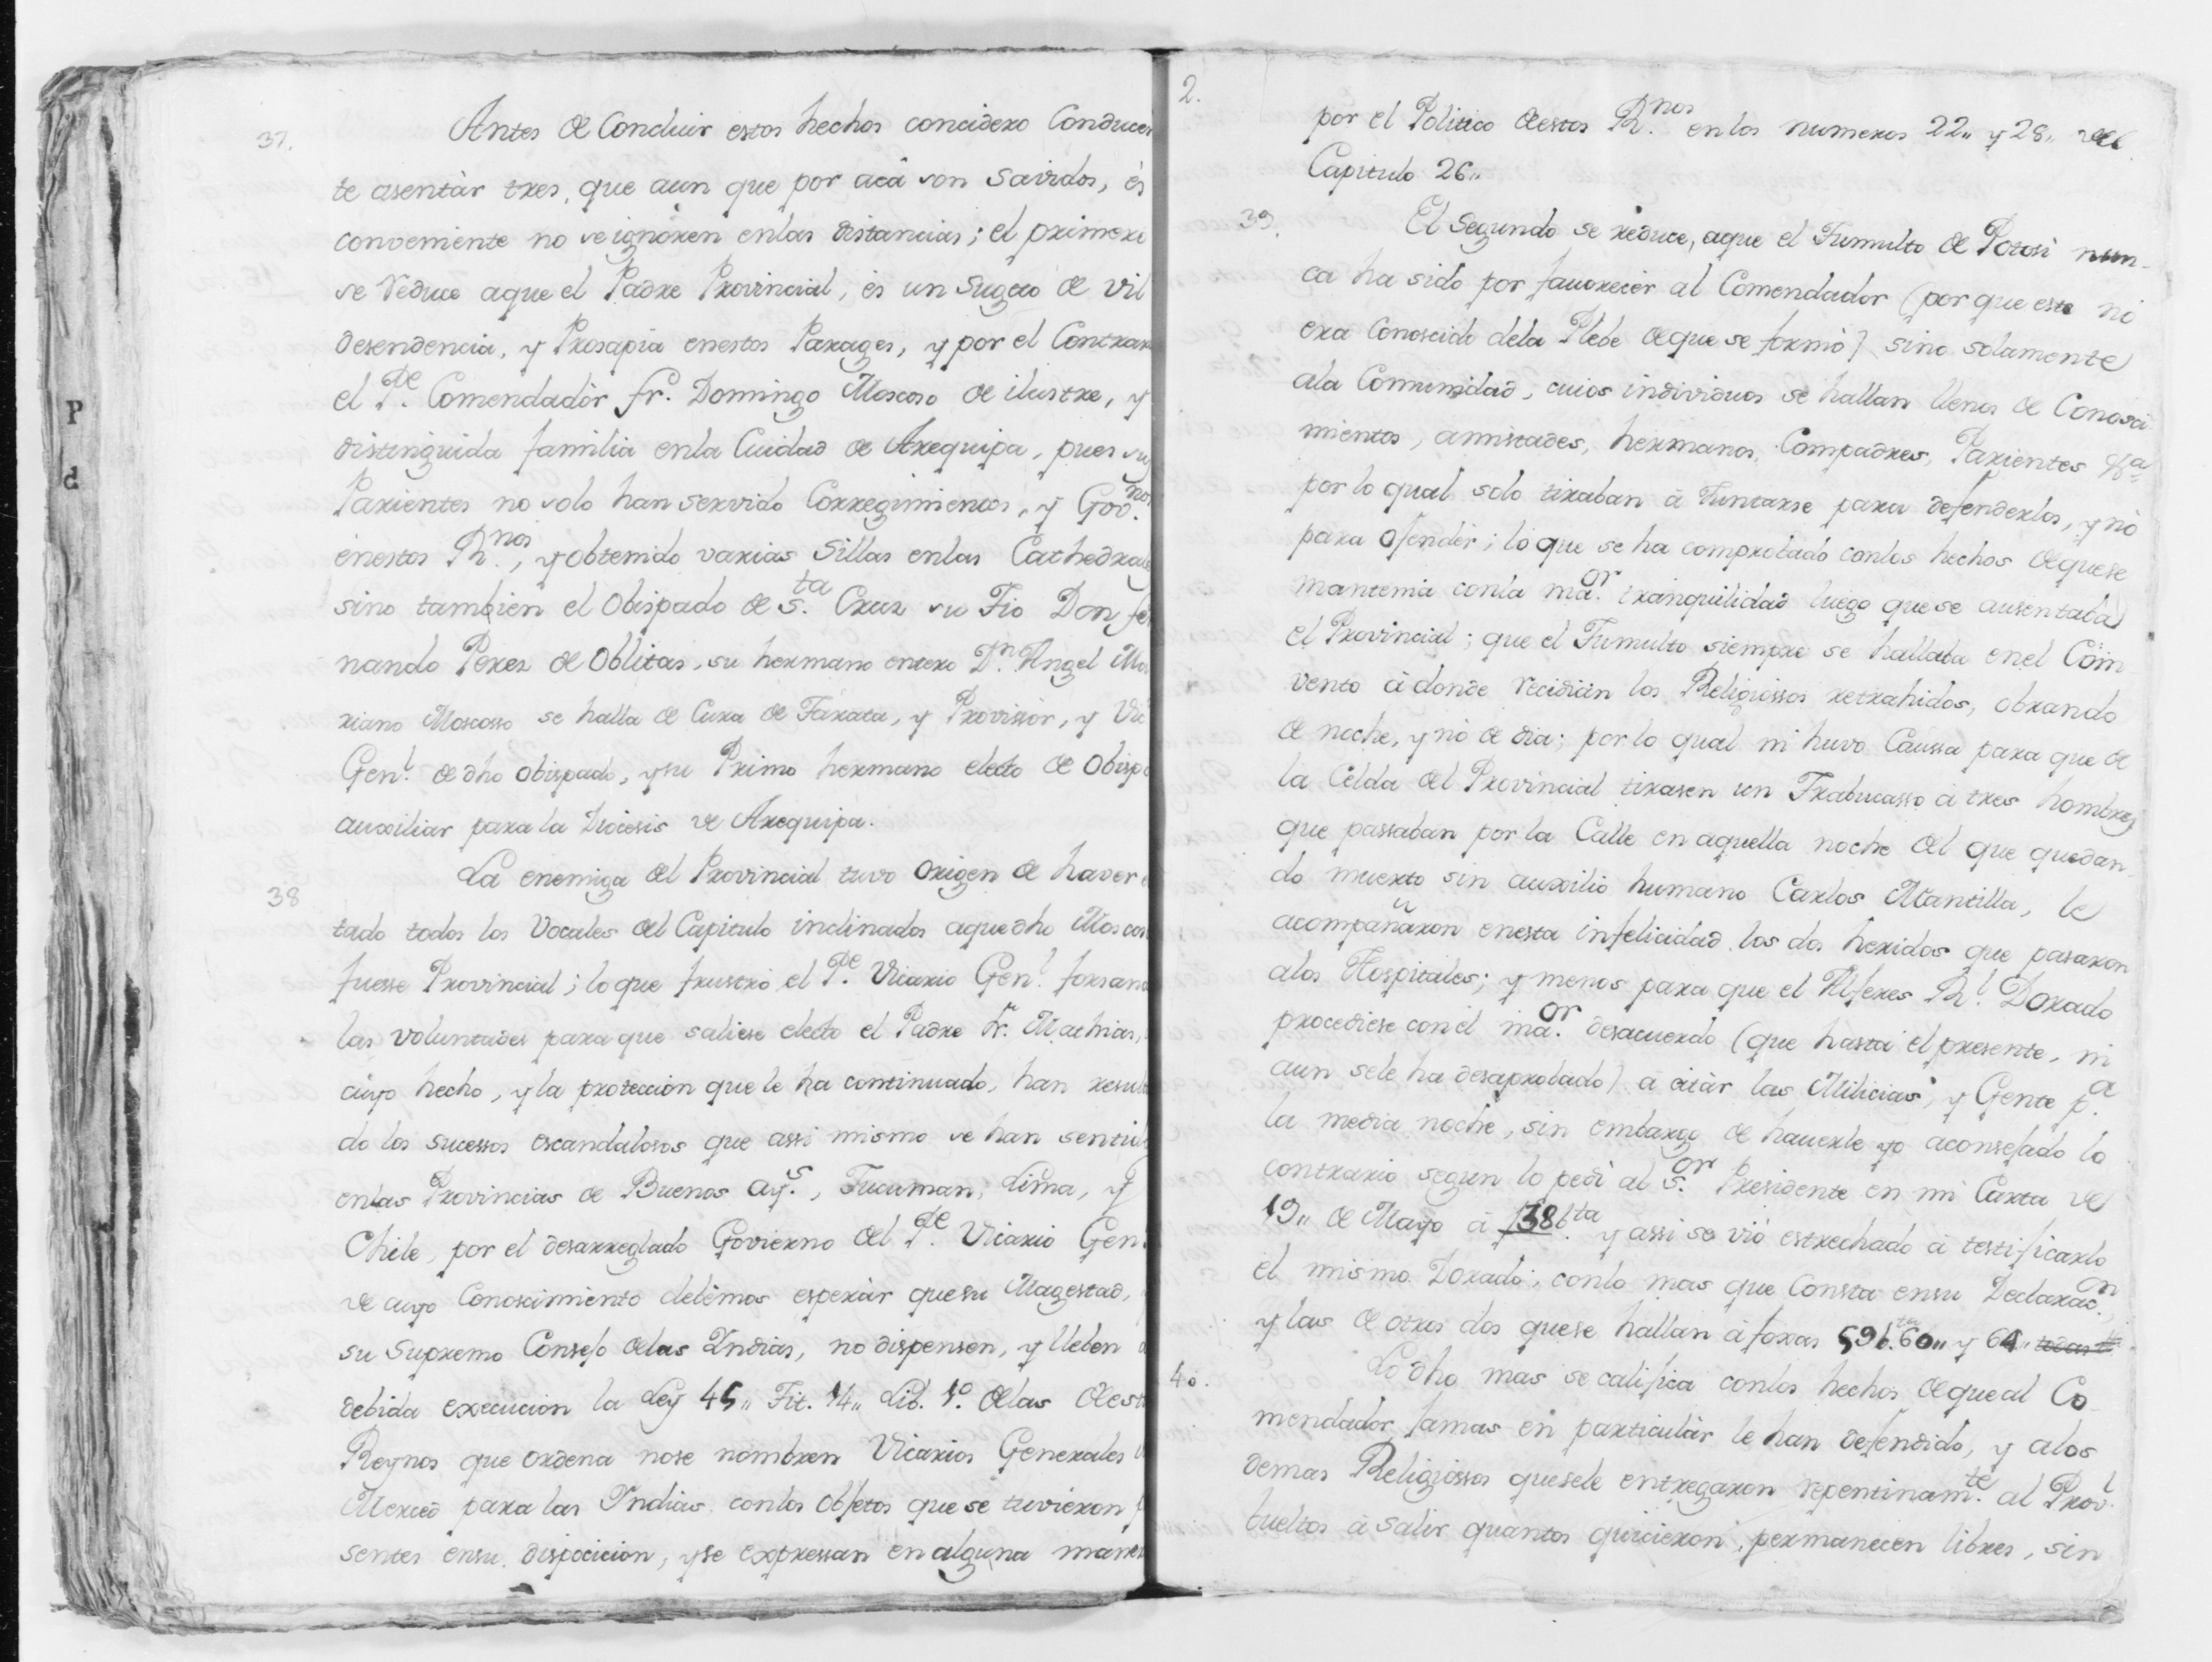 37.
Antes de Concluir estos hechos concidero Conducen
te asentàr tres, que aun que por acâ son Savidos, és
conveniente no se ignoren enlas distancias; el primero
se reduce aque el Padre Provincial, és un Sugeto de vil
desendencia, y Prosapia enestos Parages, y por el Contrar
el P.e Comendadòr fr. Domingo Moscoso de ilustre, y
distinguida familia enla Cuidad de Arequipa, pues sus
Parientes no solo han servido Corregimientos, y Gov.nos
enestos R.nos, y obtenido varias Sillas enlas Cathedrale
sino tambien el Obispado de S.ta Cruz su Tio Don fer
nando Perez de Oblitas, su hermano entero D.n Angel Ma
riano Moscosso se halla de Cura de Tarata, y Provissòr, y Vic
Gen.l de dho Obispado, y su Primo hermano electo de Obispo
auxiliar para la Diocesis de Arequipa.
38
La enemiga del Provincial tuvo origen de haver es
tado todos los Vocales del Capitulo inclinados aque dho Moscos
fuesse Provincial; lo que frustrò el P.e Vicario Gen.l forsand
las voluntades para que saliese electo el Padre Fr. Mathias,
cuyo hecho, y la protección que le ha continuado, han result
do los sucessos escandalosos que assi mismo se han sentid
enlas Provincias de Buenos Ay.s, Tucuman, Lima, y
Chile, por el desarreglado Govierno del P.e Vicario Gen.l
de cuyo Conoscimiento debèmos esperàr que su Magestad,
su Supremo Consejo delas Yndias, no dispensen, y lleben a
debida execucion la Ley 45,, Tit. 14,, Lib. 1º. delas de est
Reynos que ordena nose nombren Vicarios Generales
Merced para las Yndias, conlos objetos que se tuvieron p
sentes ensu disposicion, y se expressan en alguna maner
2.
por el Politico de estos R.nos en los numeros 22,, y 28,, del
Capitulo 26,,
39.
El Segundo se reduce, aque el Tumulto de Potosì nun-
ca ha sido por favorecèr al Comendador (por que este nò
era Conoscido dela Plebe de que se formò) sino solamente
ala Comunidad, cuios individuos se hallan llenos de Conosci
mientos, amistades, hermanos, Compadres, Parientes &.a
por lo qual solo tiraban à Juntarse para defenderlos, y nò
para ofendèr; lo que se ha comprobado conlos hechos de que se
mantenia conla ma.or tranquilidad luego que se ausentaba
el Provincial; que el Tumulto siempre se hallaba enel Com
vento à donde recidiàn los Religiossos retrahidos, obrando
de noche, y nò de dia; por lo qual ni huvo Caussa para que de
la Celda del Provincial tirasen un Trabucasso à tres hombres
que passaban por la Calle en aquella noche del que quedan-
do muerto sin auxilio humano Carlos Mantilla, le
acompañaron enesta infelicidad los dos heridos que pasaron
alos Hospitales; y menos para que el Alferes R.l Dorado
procediese con él ma.or desacuerdo (que hasta el presente, ni
aun sele ha desaprobado) à citàr las Milicias, y Gente p.a
la media noche, sin embargo de hauerle yo aconsejado lo
contrario segun lo pedì al S.or Presidente en mi Carta de
19,, de Mayo à f38 b.ta y assi se viò estrechado à testificarlo
el mismo Dorado; conlo mas que Consta ensu Declarac.on
y las de otros dos que se hallan à foxas 59b.ta 60,, y 64,,
40.
Lo dho mas se califica conlos hechos de que al Co-
mendador Jamas en particulàr le han defendido, y alos
demas Religiossos quesele entregaron repentinam.te al Prov.l
bueltos à salir quantos quicieron, permanecen libres, sin